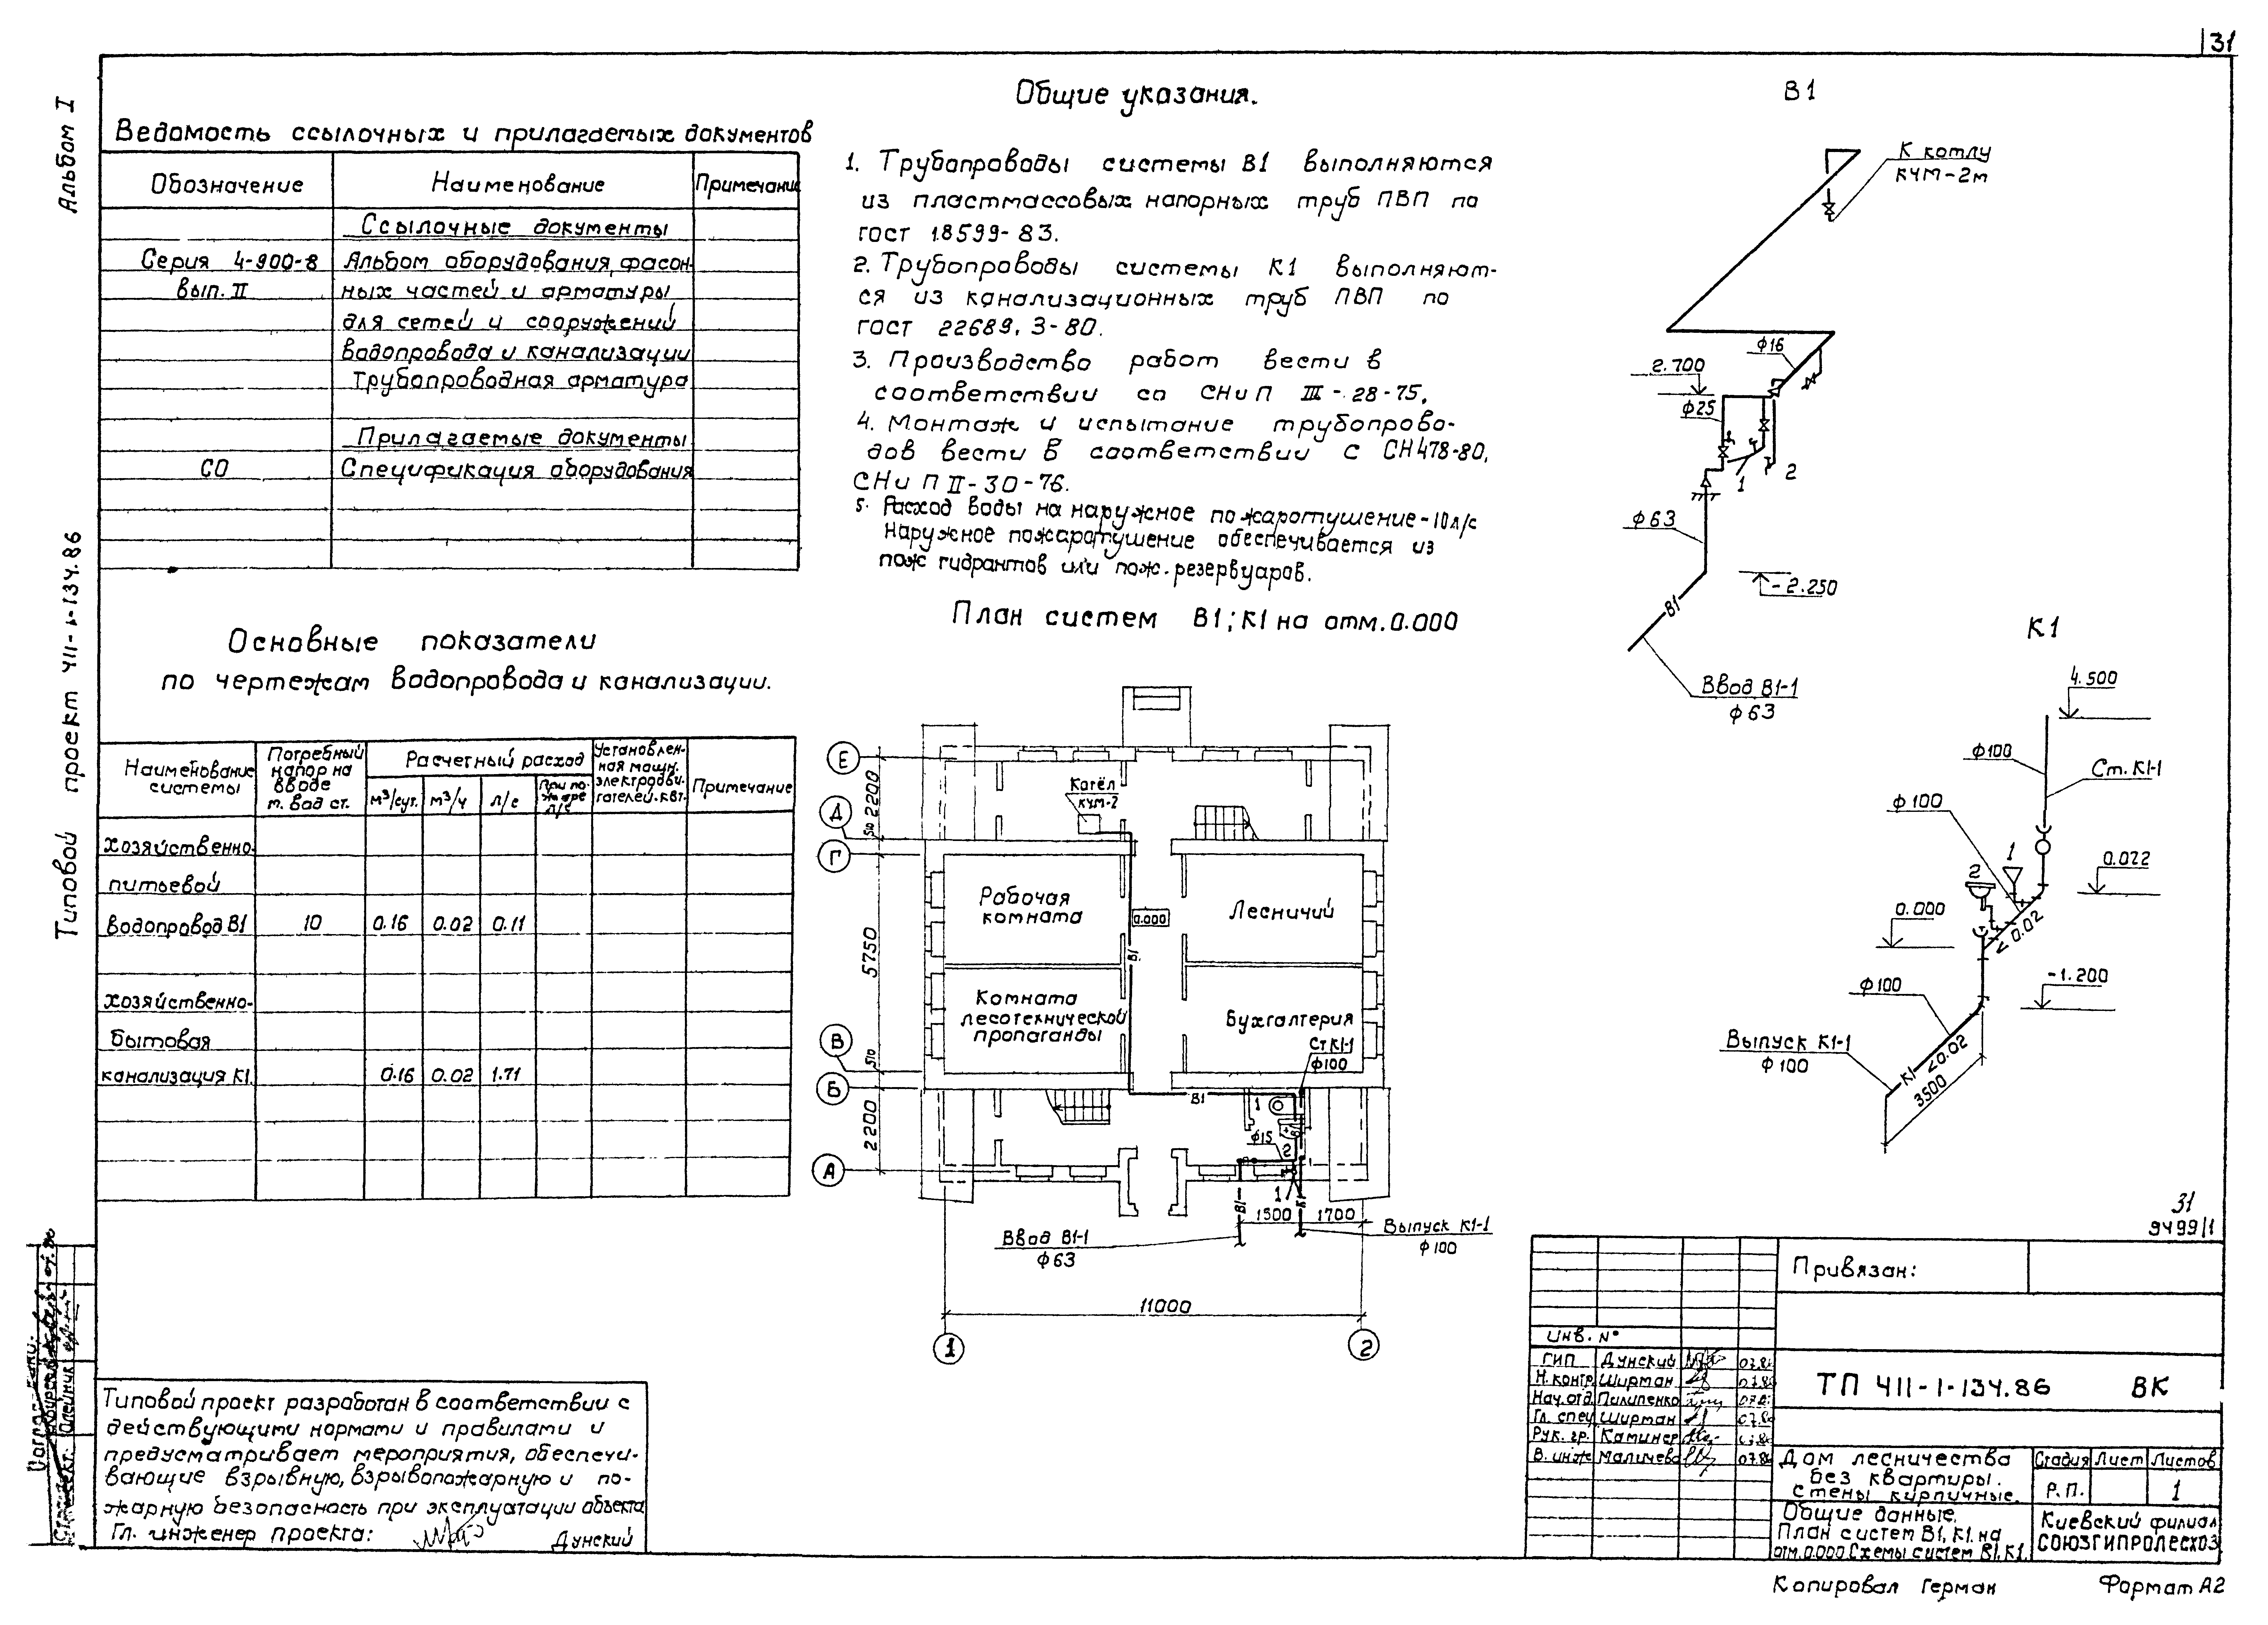 31
Альбом I
Типовой проект 411-1-134.86
Ведомость ссылочных и прилагаемых документов
Обозначение Наименование Примечание
Ссылочные документы
Серия 4-900-8 Альбом оборудования, фасон-
вып. II ных частей и арматуры
для сетей и сооружений
водопровода и канализации
Трубопроводная арматура
Прилагаемые документы
СО Спецификация оборудования
Основные показатели
по чертежам водопровода и канализации.
Наименование системы
Потребный напор на вводе м. вод ст.
Расчетный расход
м³/сут. м³/ч л/с При пожаре л/с
Установлен-
ная мощн.
электродви-
гателей. квт.
Примечание
хозяйственно-
питьевой
водопровод В1 10 0.16 0.02 0.11
хозяйственно-
бытовая
канализация К1. 0.16 0.02 1.71
Общие указания.
1. Трубопроводы системы В1 выполняются
из пластмассовых напорных труб ПВП по
ГОСТ 18599-83.
2. Трубопроводы системы К1 выполняют-
ся из канализационных труб ПВП по
ГОСТ 22689, 3-80.
3. Производство работ вести в
соответствии со СНиП III-28-75,
4. Монтаж и испытание трубопрово-
дов вести в соответствии с СН478-80,
СНиП II-30-76.
5. Расход воды на наружное пожаротушение-10л/с
Наружное пожаротушение обеспечивается из
пож гидрантов или пож. резервуаров.
План систем В1; К1 на отм. 0.000
Е
Д
Г
В
Б
А
2200
510
5750
510
2200
Котёл
КЧМ-2
Рабочая
комната
0.000
Лесничий
В1
Комната
лесотехнической
пропаганды
Бухгалтерия
Ст К1-1
ф100
В1
1
В1
ф15
2
1
В1
К1
1500 1700
Ввод В1-1
ф63
Выпуск К1-1
ф100
11000
1 2
В1
К котлу
КЧМ-2м
ф16
2.700
ф25
1 2
ф63
-2.250
В1
Ввод В1-1
ф63
К1
4.500
ф100
Ст. К1-1
ф100
1
2
0.022
0.000
< 0.02
-1.200
ф100
Выпуск К1-1
ф100
К1 <0.02
3500
31
9499/1
Типовой проект разработан в соответствии с
действующими нормами и правилами и
предусматривает мероприятия, обеспечи-
вающие взрывную, взрывопожарную и по-
жарную безопасность при эксплуатации объекта
Гл. инженер проекта: Дунский
Привязан:
Инв. №
ГИП Дунский 07.86
Н.контр. Ширман 07.86
Нач. отд. Пилипенко 07.86
Гл. спец Ширман 07.86
Рук. гр. Каминер 07.86
В. инж 07.86
ТП 411-1-134.86 ВК
Дом лесничества
без квартиры.
Стены кирпичные.
Стадия Лист Листов
Р.П. 1
Общие данные.
План систем В1, К1. на
отм. 0.000 Схемы систем В1. К1.
Киевский филиал
СОЮЗГИПРОЛЕСХОЗ
Копировал Герман Формат А2